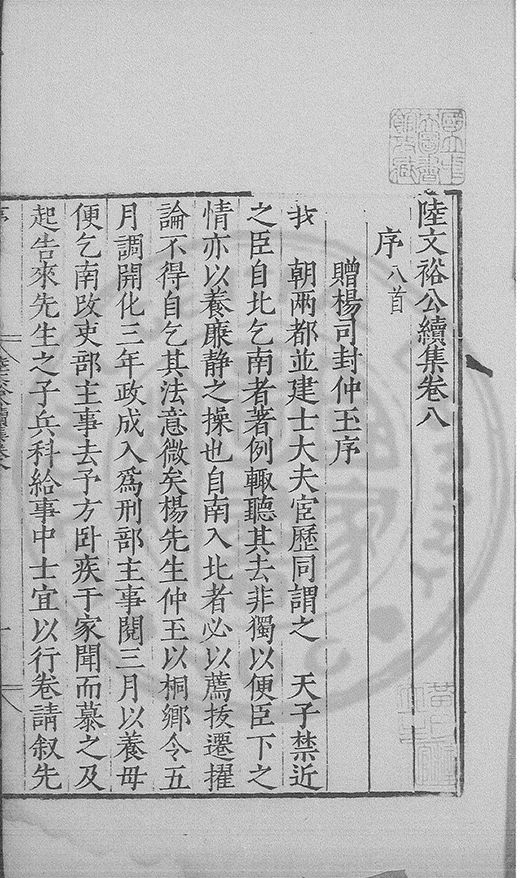 陸文裕公續集卷八
序八首
贈楊司封仲玉序
我 朝兩都並建士大夫宦歷同謂之 天子禁近
之臣自北乞南者著例輙聽其去非獨以便臣下之
情亦以養廉静之操也自南入北者必以薦拔遷擢
論不得自乞其法意微矣楊先生仲玉以桐鄉令五
月調開化三年政成入爲刑部主事閱三月以養母
便乞南改吏部主事去予方卧疾于家聞而慕之及
起告來先生之子兵科給事中士宜以行卷請叙先